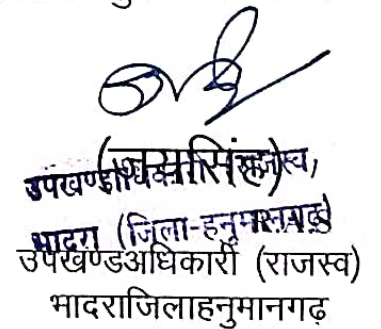 (जयसिंह)
उपखण्ड राजस्व,
भादरा (जिला-हनुमानगढ़)
उपखण्डअधिकारी (राजस्व)
भादराजिलाहनुमानगढ़